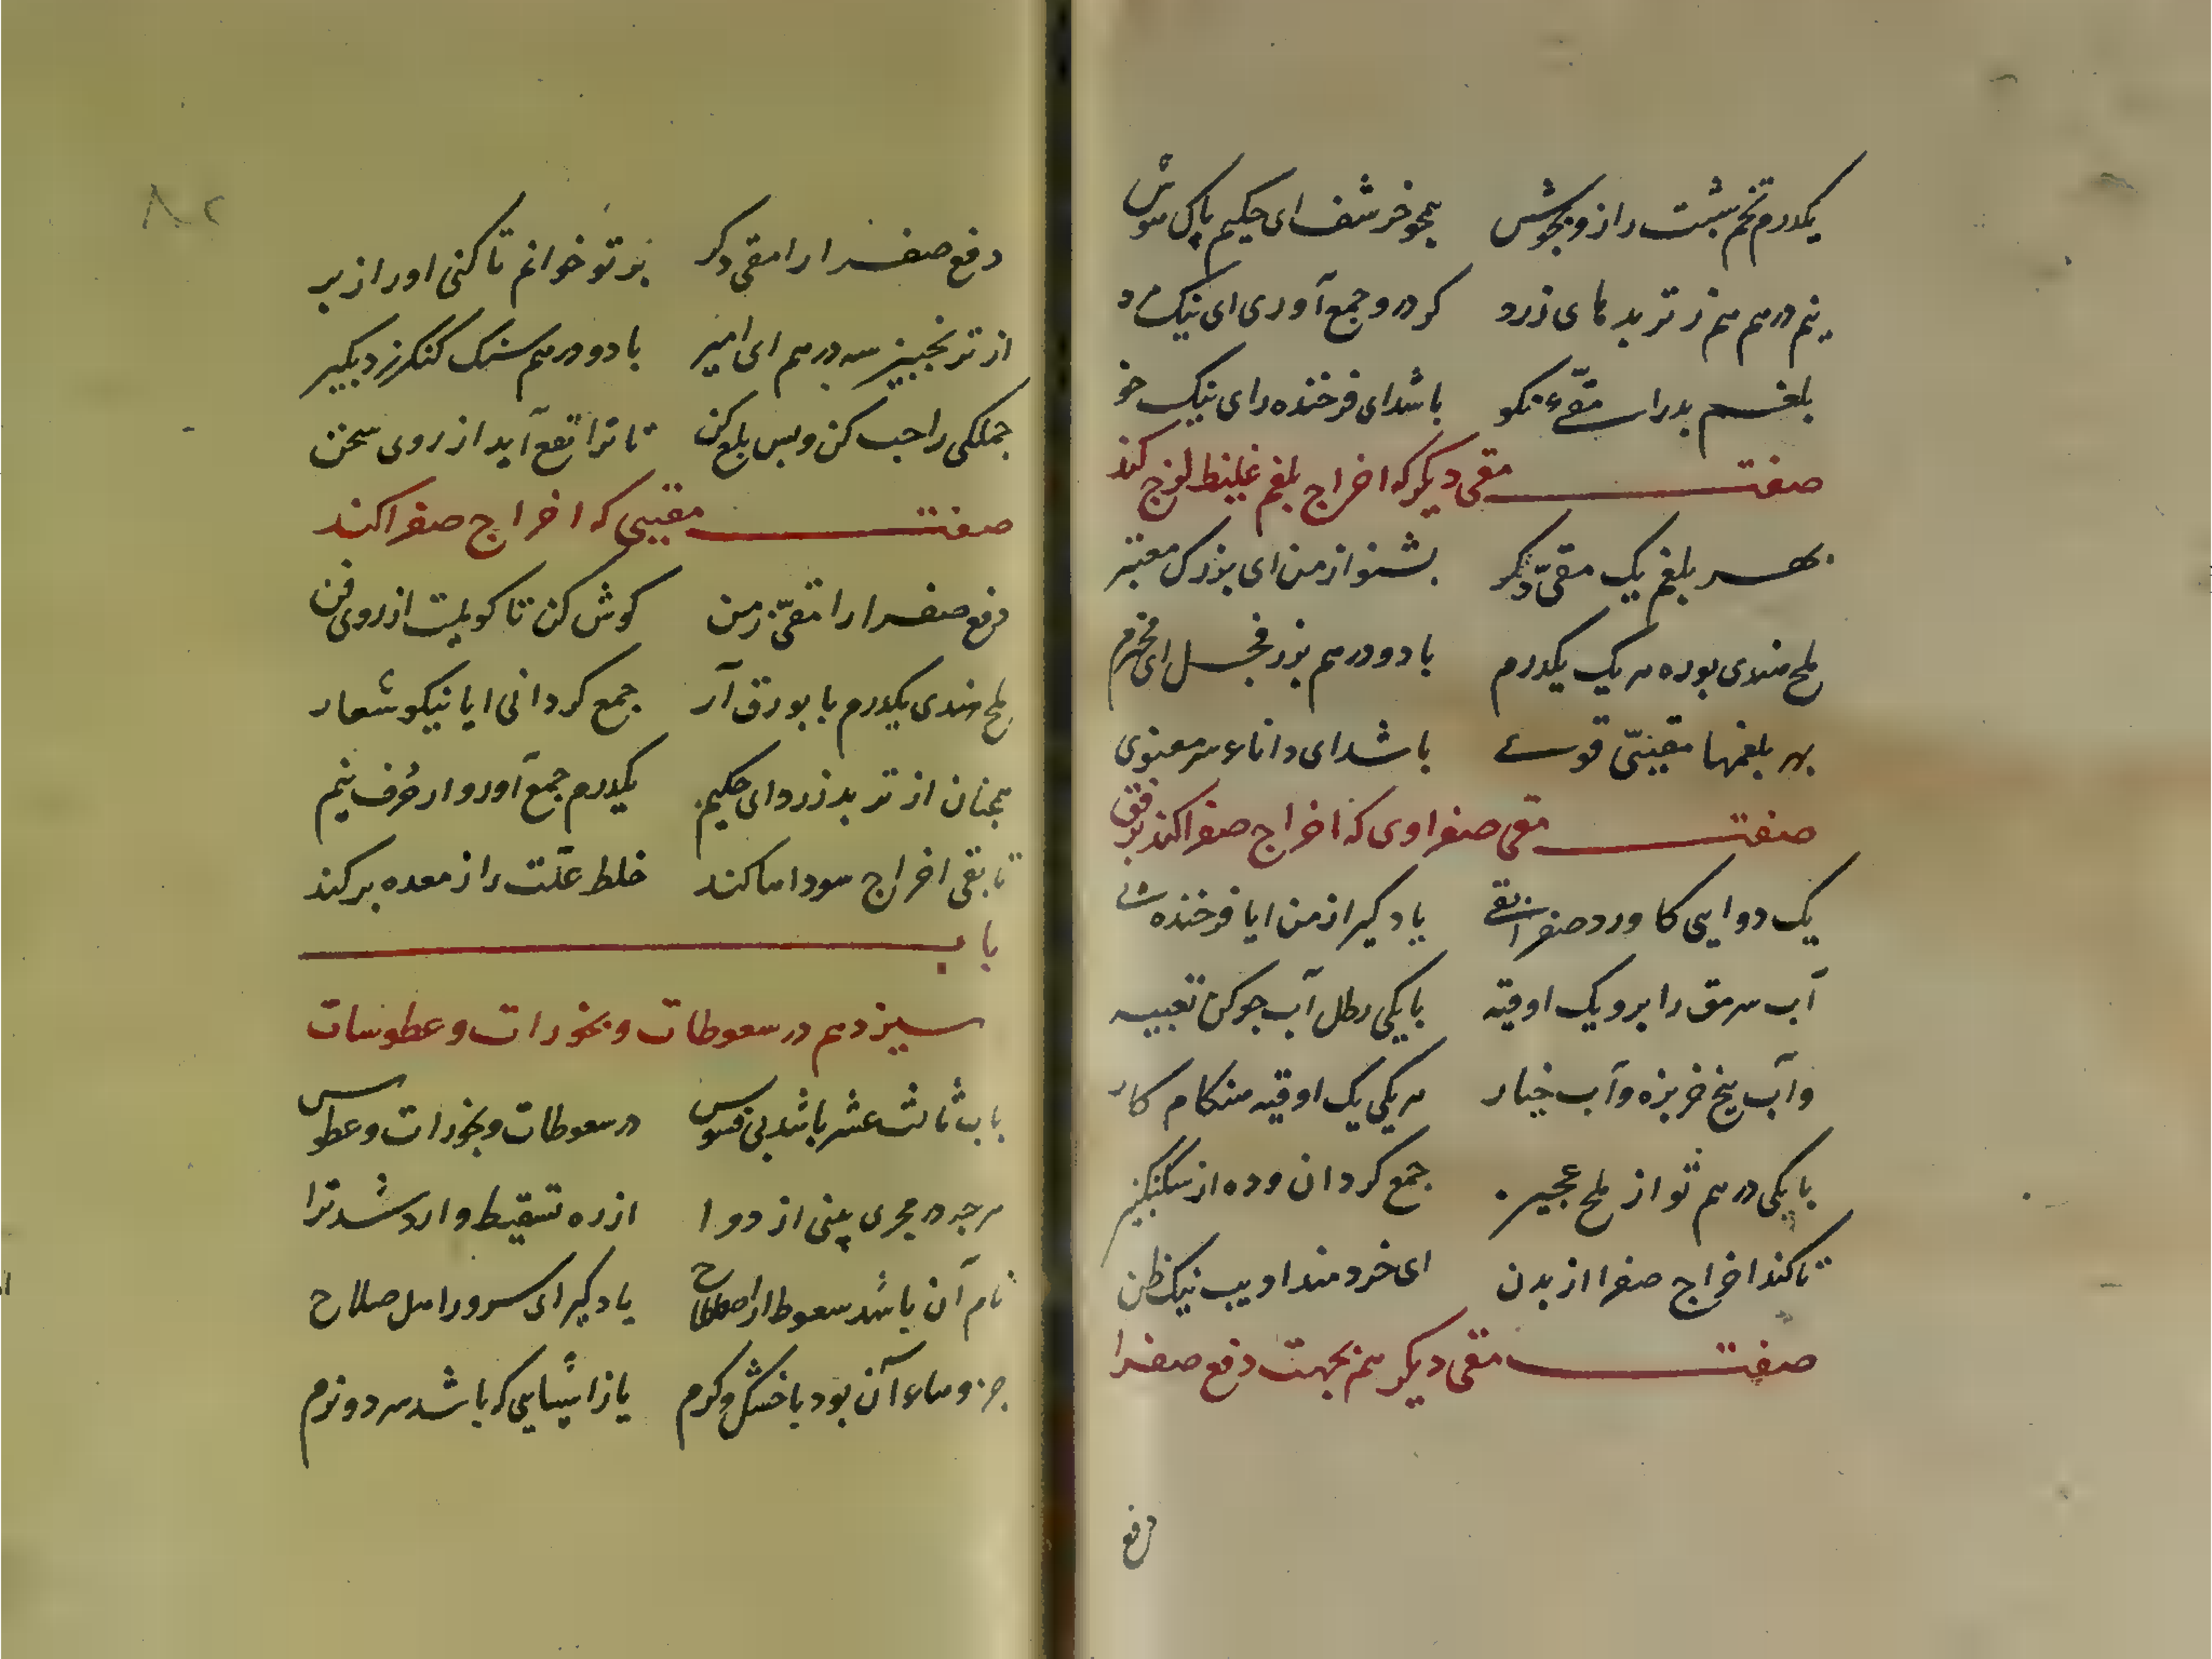 یکدرم تخم شبت را زو بجوش همچو خرشف ای حکیم پاک هوش
نیم درهم هم ز تربدهای زرد کرد در و جمع آوری ای نیک مرد
بلغم بد را مقیّء نکو باشد ای فرخنده رای نیک خو
صفت مقی دیکر که اخراج بلغم غلیظ لزج کند
بهر بلغم یک مقیّ دکر بشنو از من ای بزرک معتبر
ملح هندی بوره هر یک یکدرم با دو درهم بزر فجل ای محترم
بهر بلغمها مقییّ قوی باشد ای داناء سر معنوی
صفت مقی صفراوی که اخراج صفرا کند برفق
یک دوایی کاورد صفرا بقی یاد کیر از من ایا فرخنده
آب سرمق را برو یک اوقیه با یکی رطل آب جو کن تعبیه
وآب بیخ خربزه وآب خیار هر یکی یک اوقیه هنکام کار
با یکی درهم تو از ملح عجیر جمع کردان وده از سکنکبین
تا کند اخراج صفرا از بدن ای خردمند ادیب نیک ظن
صفت مقی دیکر هم بجهت دفع صفرا
دفع
دفع صفرا را مقی دکر بر تو خوانم تا کنی او را ز بر
از ترنجبین سه درهم ای امیر با دو درهم سنک کنکرزد بکیر
جملکی را حب کن و پس بلع کن تا ترا نفع آید از روی سخن
صفت مقییی که اخراج صفرا کند
دفع صفرا را مقیّ ز من کوش کن تا کویمت از روی فن
ملح هندی یکدرم با بورق آر جمع کردانی ایا نیکو شعار
همچنان از تربد زرد ای حکیم یکدرم جمع آور و از حُرف نیم
تا بقی اخراج سوداها کند خلط علّت را ز معده بر کند
باب
سیزدهم در سعوطات و بخورات و عطوسات
باب ثالث عشر باشد بی فسوس در سعوطات و بخورات و عطوس
هرچه در مجری بینی از دوا از ره تسقیط وارد شد ترا
نام آن باشد سعوط از اصطلاح یاد کیر ای سرور اهل صلاح
جزوهاء آن بود با خشک و کرم یا ز اشیایی که باشد سرد و نرم